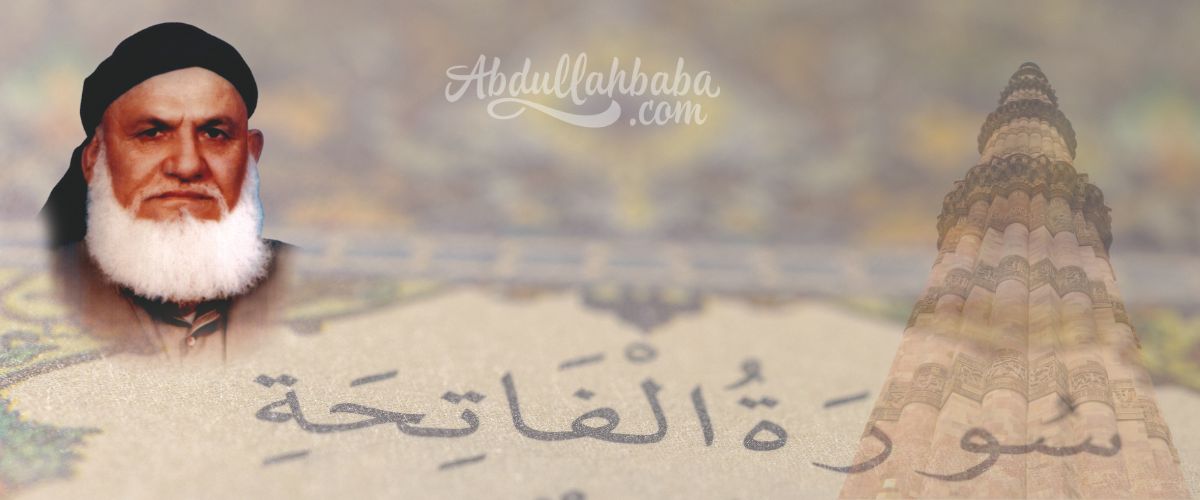 Abdullahbaba
.com
سُورَةُ الْفَاتِحَةِ